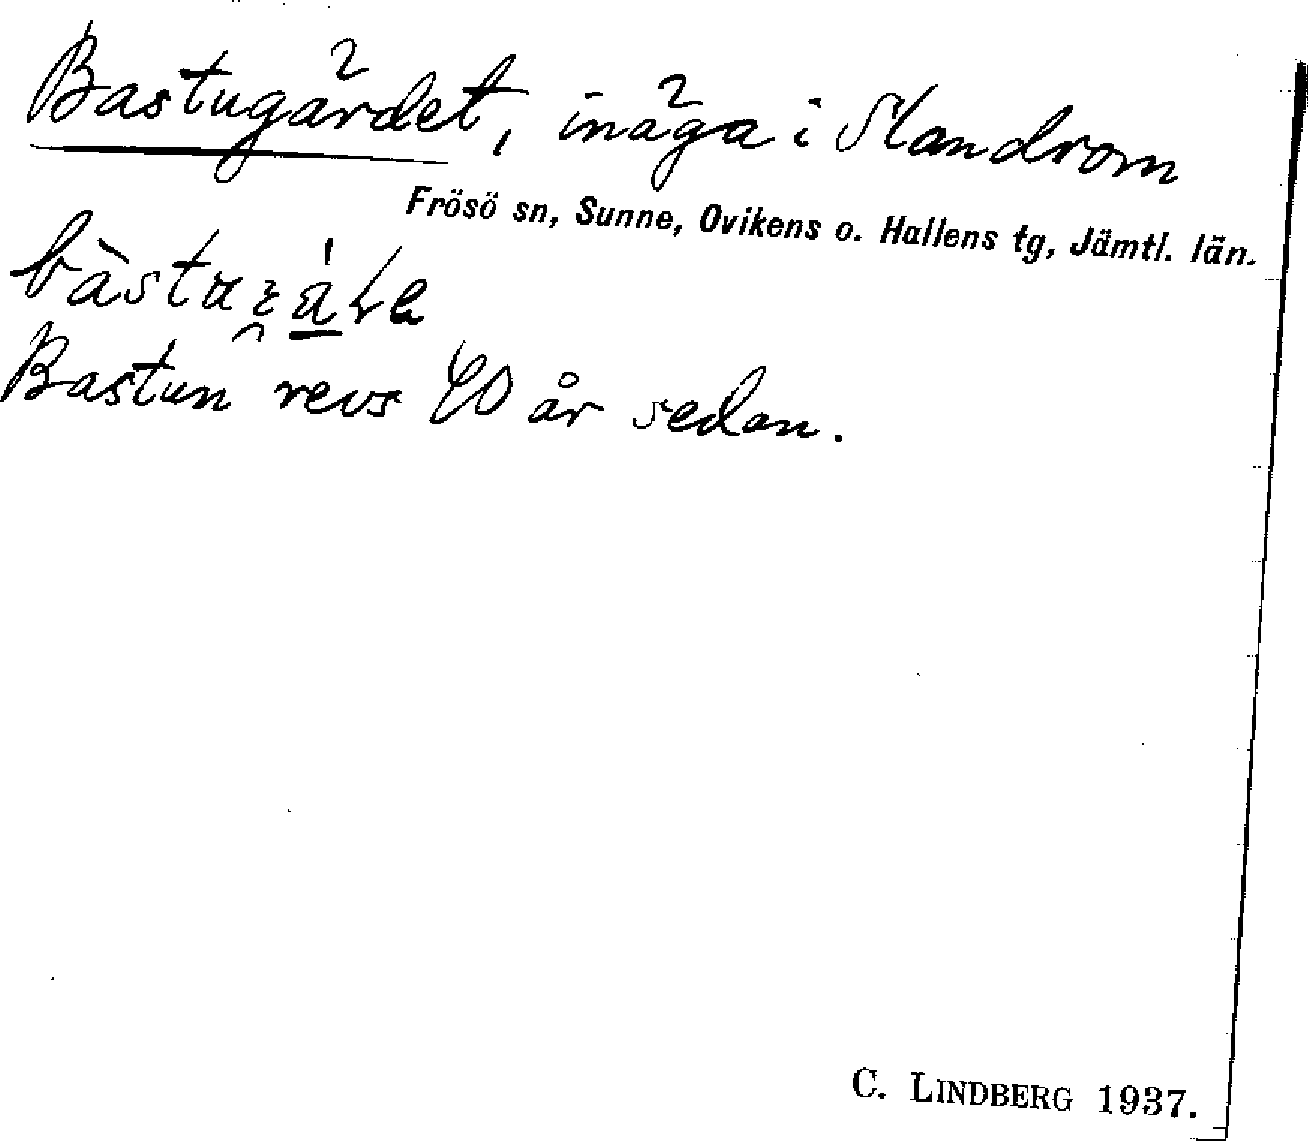 Bastugärdet, inäga i Slandrom
Frösö sn, Sunne, Ovikens o. Hallens tg, Jämtl. län.
Bastun revs 40 år sedan.
C. LINDBERG 1937.